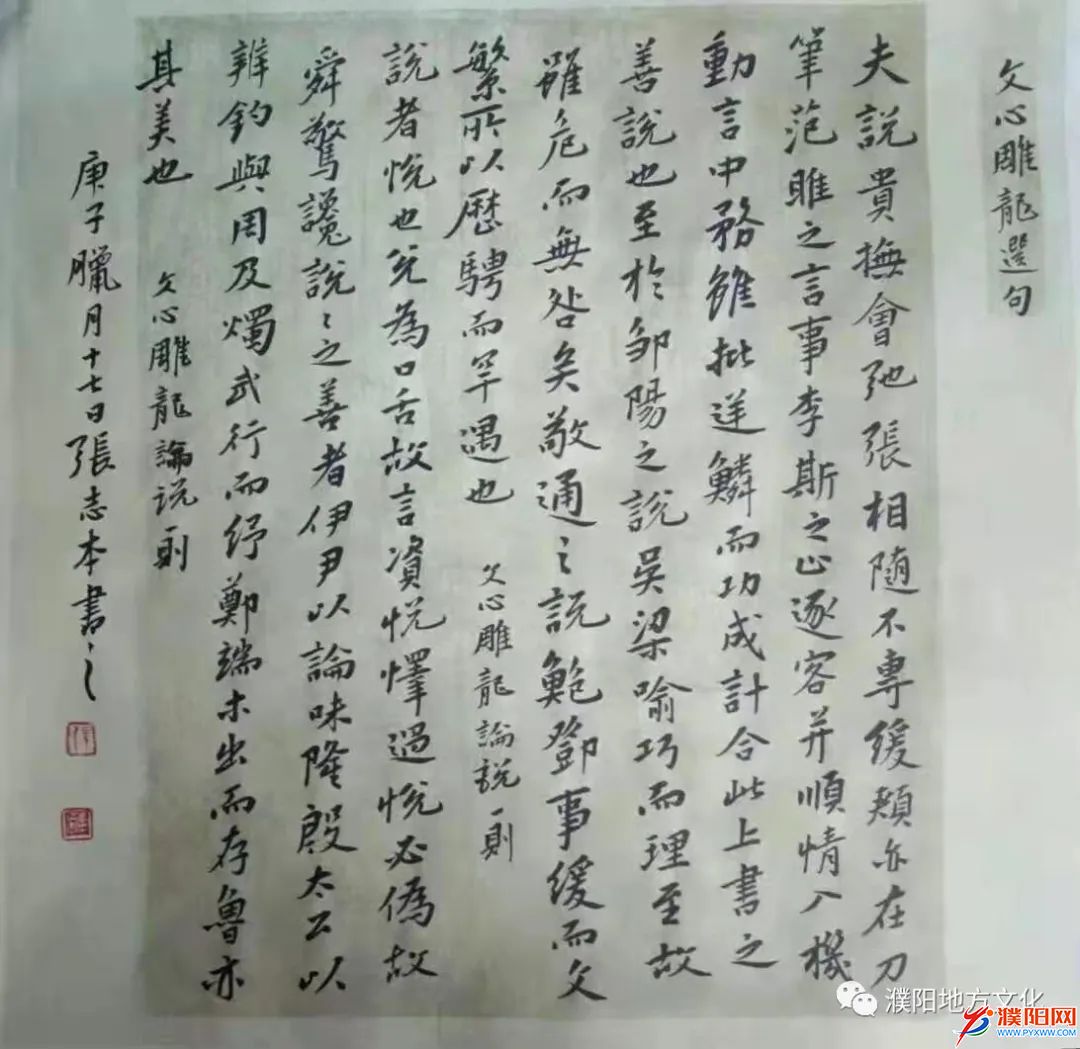 文心雕龍選句
夫說貴撫會弛張相随不專緩頰亦在刀
筆范雎之言事李斯之止逐客并順情入機
動言中務雖批逆鱗而功成計合此上書之
善說也至於邹陽之說吳梁喻巧而理至故
雖危而無咎矣敬通之說鮑鄧事緩而文
繁所以歷騁而罕遇也 文心雕龍論說一則
說者悅也兊為口舌故言資悅懌過悅必偽故
舜驚讒說說之善者伊尹以論味隆殷太公以
辨釣興周及燭武行而紓鄭端木出而存魯亦
其美也 文心雕龍論説一則
庚子臘月十七日張志本書之
濮阳地方文化
濮阳网
WWW.PYXWW.COM